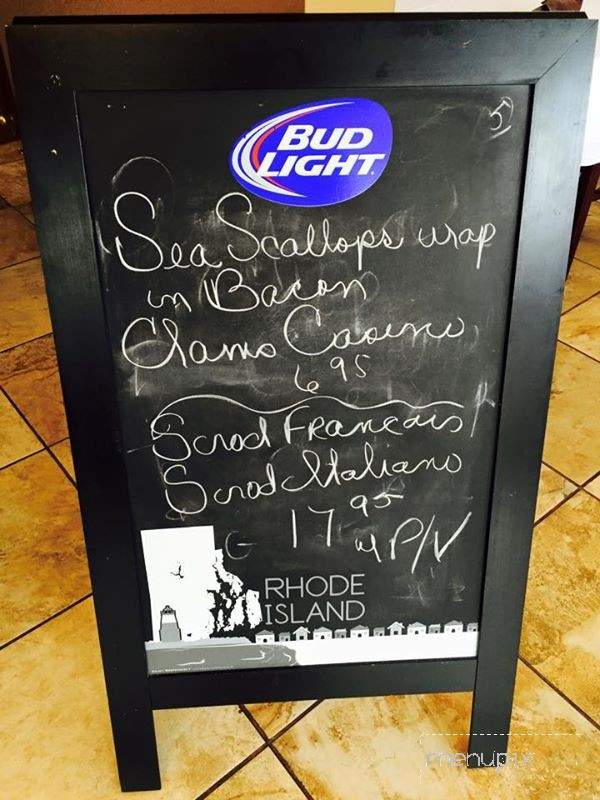 5
BUD
LIGHT
Sea Scallops wrap
in Bacon
Clams Casino
6 95
Scrod Francais
Scrod Italiano
17 95
w P/V
RHODE
ISLAND
menupix